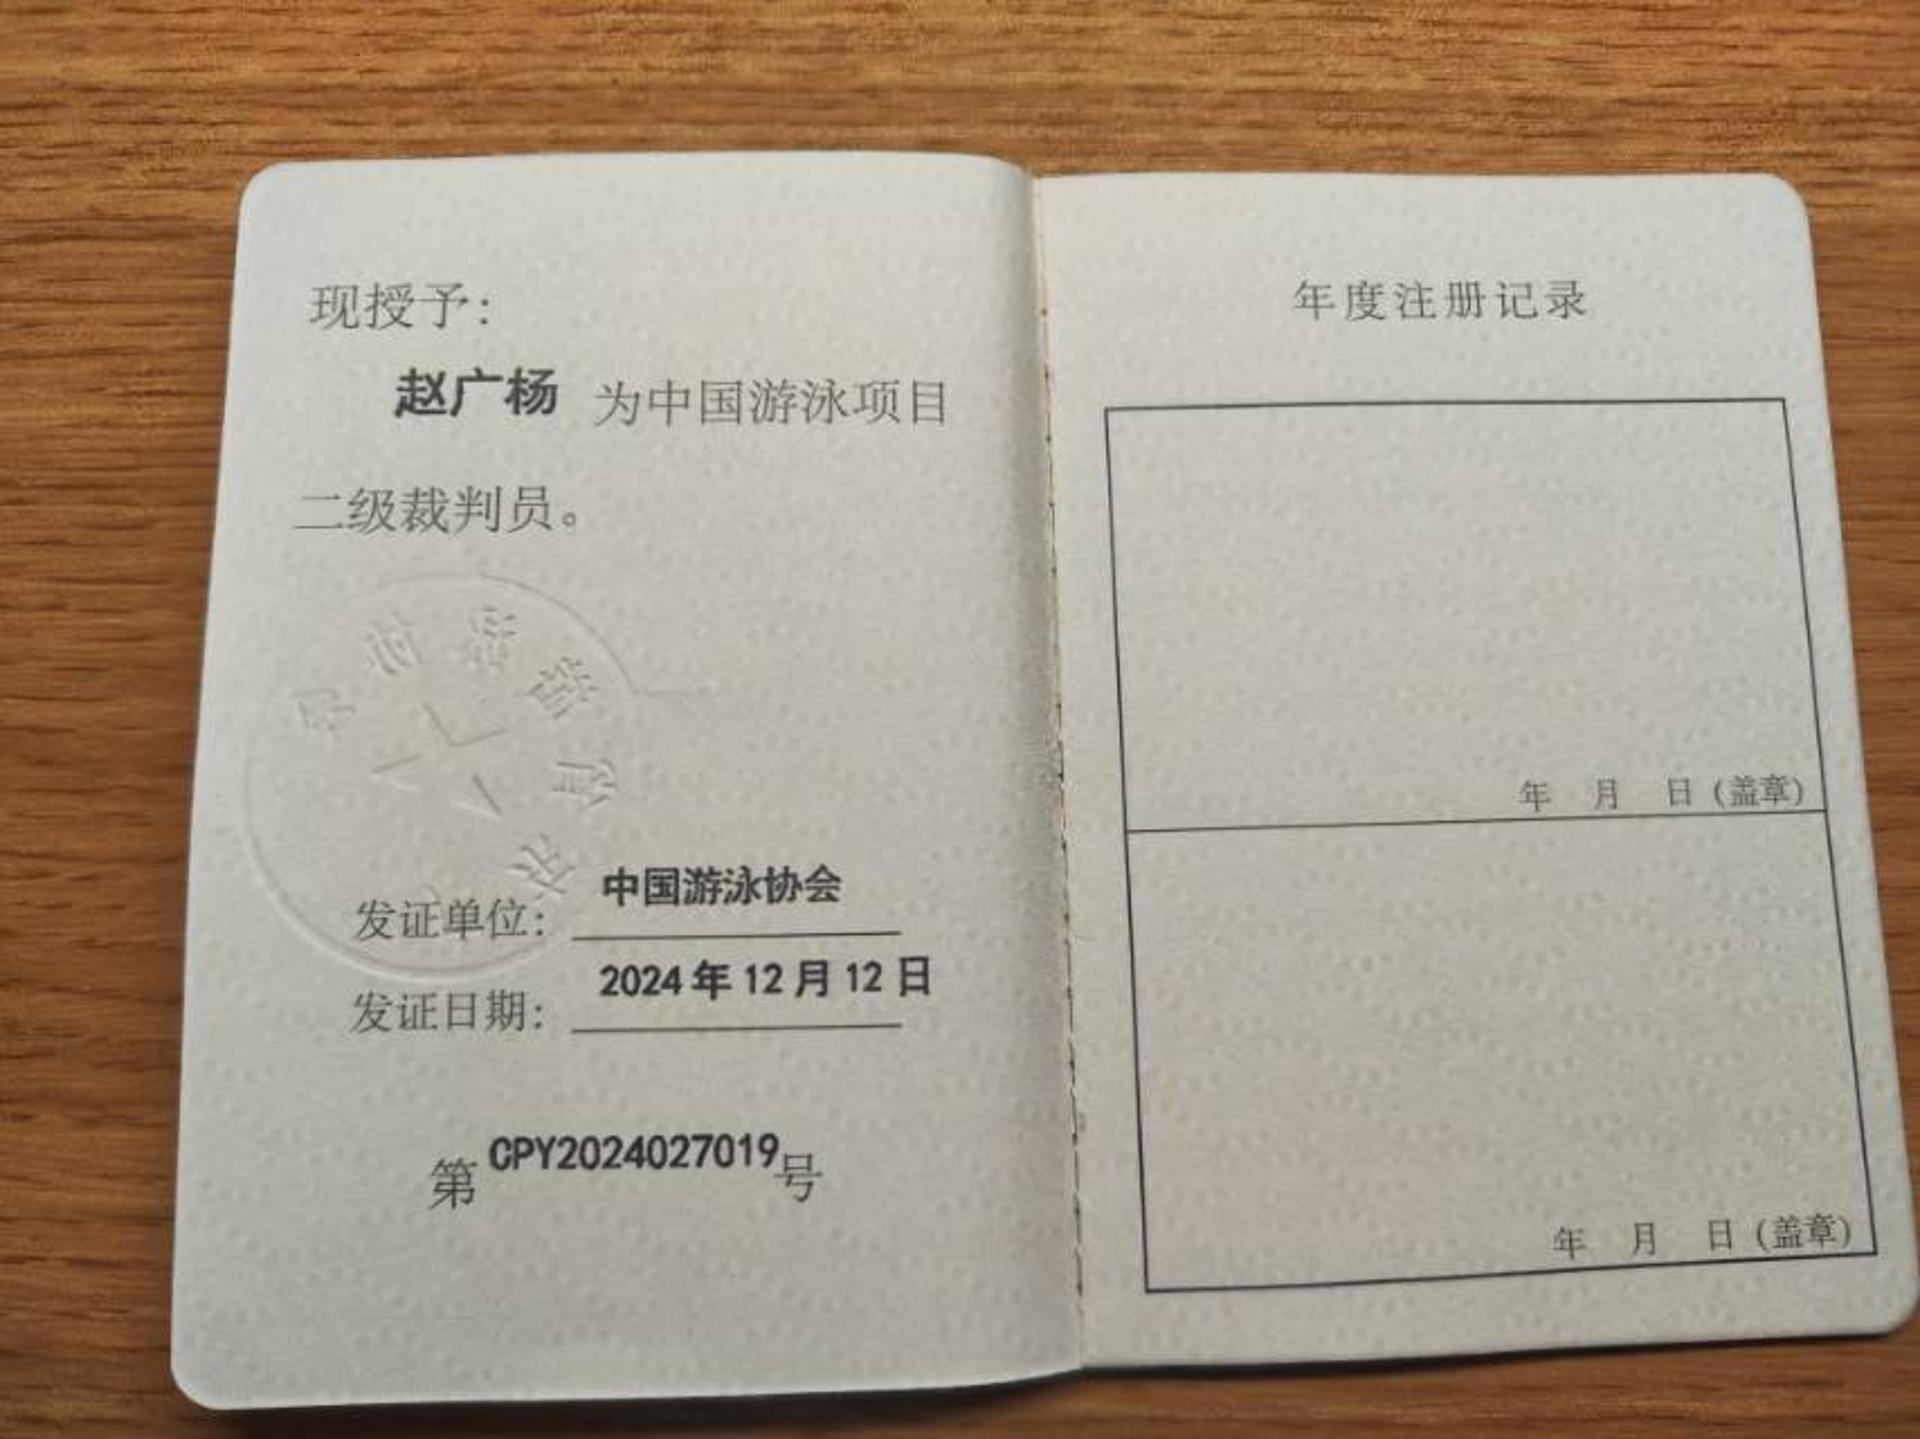 现授予：
赵广杨 为中国游泳项目
二级裁判员。
发证单位： 中国游泳协会
发证日期： 2024年12月12日
第CPY2024027019号
年度注册记录
年 月 日（盖章）
年 月 日（盖章）